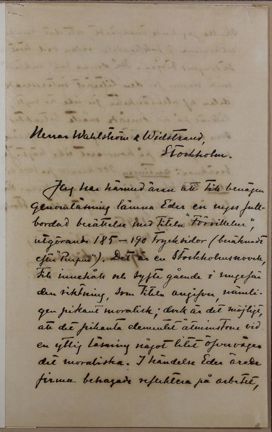 Herrar Wahlström & Widstrand,
Stockholm.
Jag har härmed äran att till benägen
genomläsning lämna Eder en nyss full-
bordad berättelse med titeln "Förvillelser",
utgörande 185–190 trycksidor (beräknadt
efter "Pupus"). Det är en Stockholmsnovell,
till innehåll och syfte gående i ungefär
den riktning, som titeln angifver, nämli-
gen pikant moralisk; dock är det möjligt,
att det pikanta elementet åtminstone vid
en ytlig läsning något litet öfverväger
det moraliska. I händelse Eder ärade
firma behagade reflektera på arbetet,